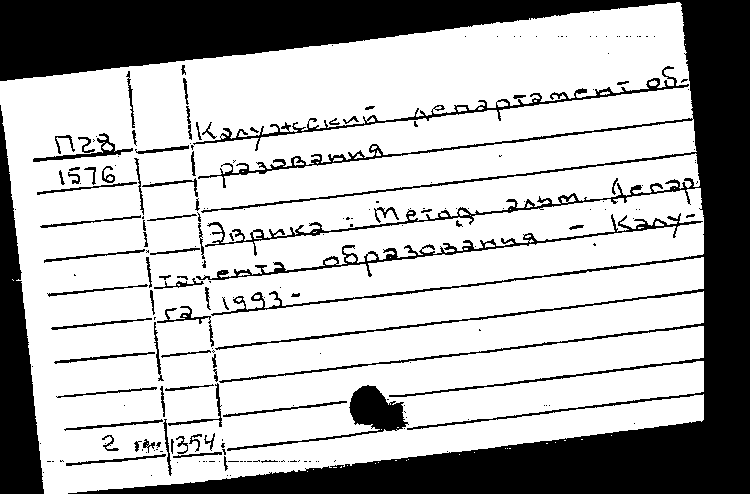 П28
1576
Калужский департамент об-
разования
Эврика : Метод. альм. Депар
тамента образования - Калу-
га, 1993-
2 1354